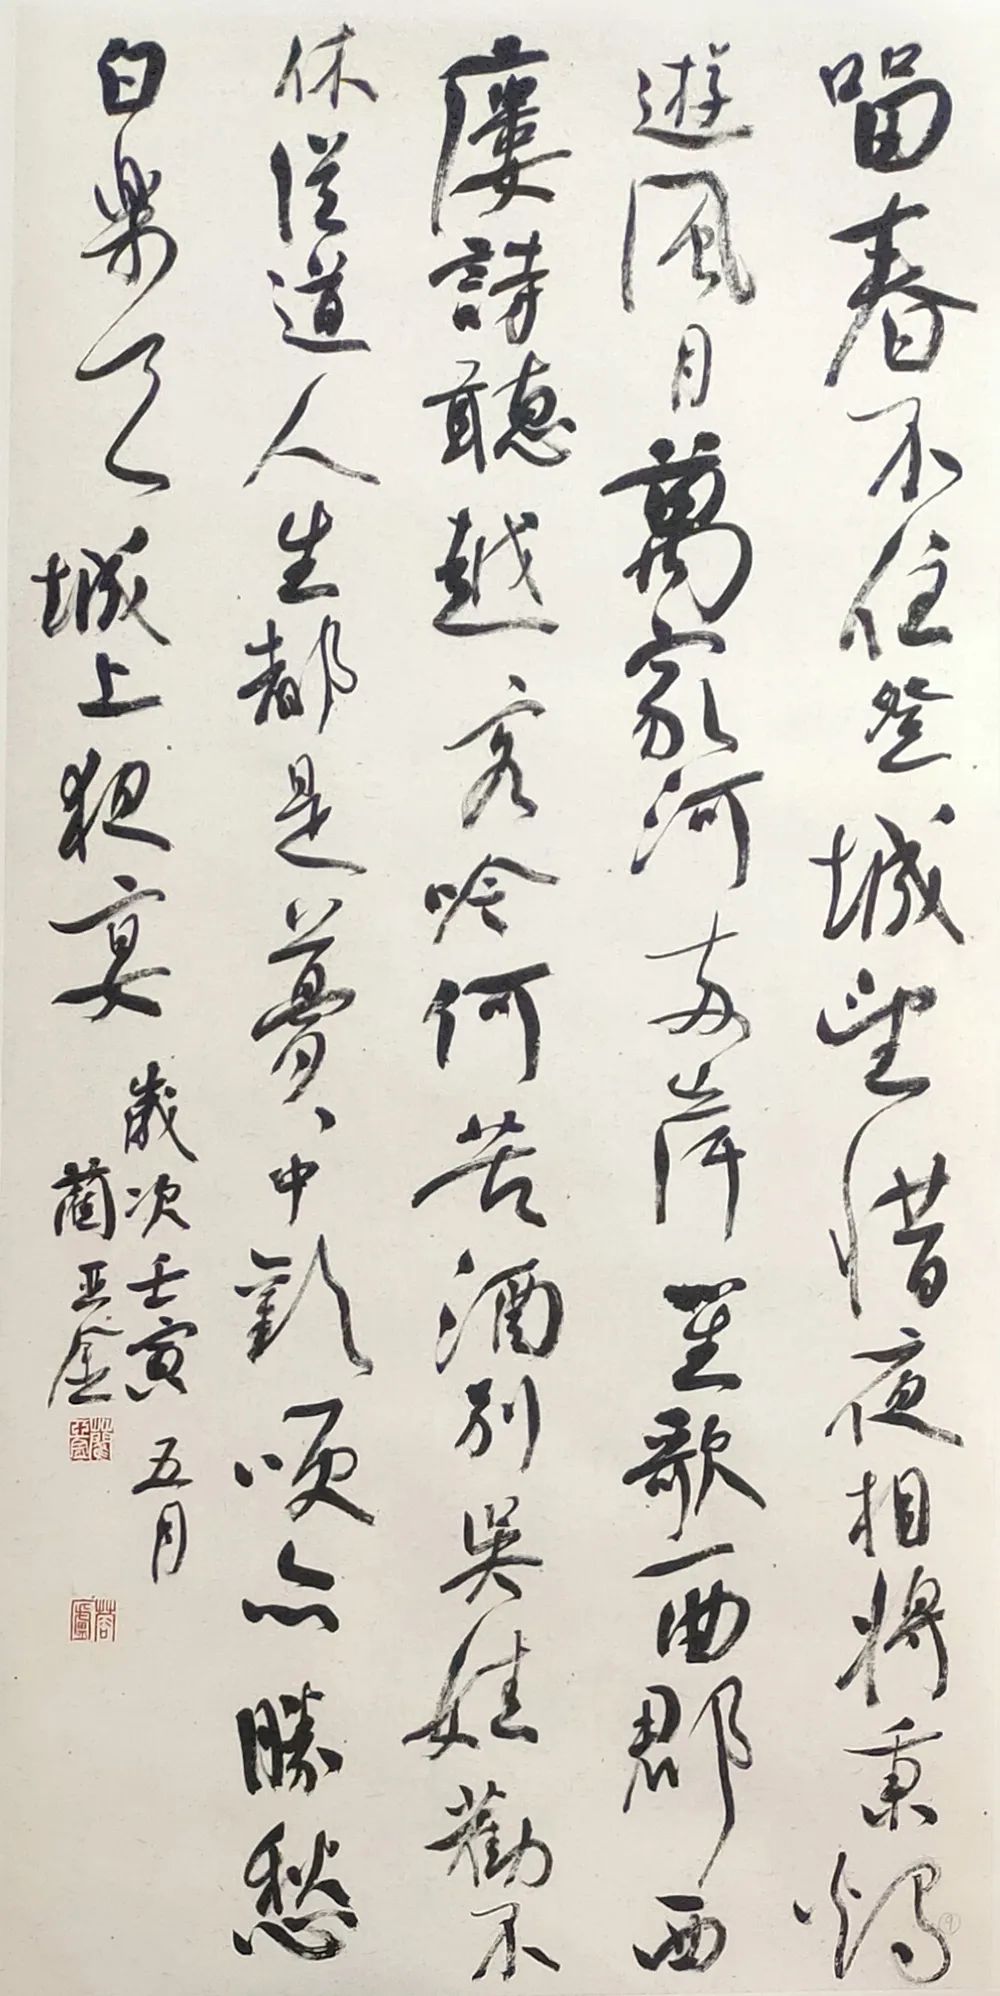 留春不住登城望惜夜相將秉燭
遊風月萬家河兩岸笙歌一曲郡西
廔詩聽越客吟何苦酒別吳娃勸不
休從道人生都是夢夢中歡笑亦勝愁
白樂天城上夜宴
歲次壬寅五月
藺亚金